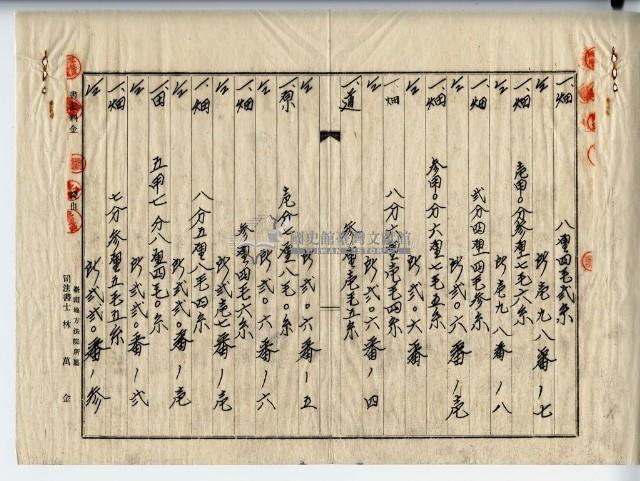 一、畑 八厘四毛弐糸
仝 所壱九八番ノ七
一、畑 壱甲〇分参厘七毛六糸
仝 所壱九八番ノ八
一、畑 弐分四厘四毛参糸
仝 所弐〇六番ノ壱
一、畑 参甲〇分六厘七毛五糸
仝 所弐〇六番
一、畑 八分 毛四糸
仝 所弐〇六番ノ四
一、道 厘壱毛五糸
仝 所弐〇六番ノ五
一、原 壱分七厘八毛〇糸
仝 所弐〇六番ノ六
一、畑 参厘四毛六糸
仝 所弐壱七番ノ壱
一、畑 八分五厘八毛四糸
仝 所弐弐〇番ノ壱
一、田 五甲七分八厘四毛〇糸
仝 所弐弐〇番ノ弐
一、畑 七分参厘五毛五糸
仝 所弐弐〇番ノ参
書 料金
臺南地方法院所屬
司法書士 林萬金